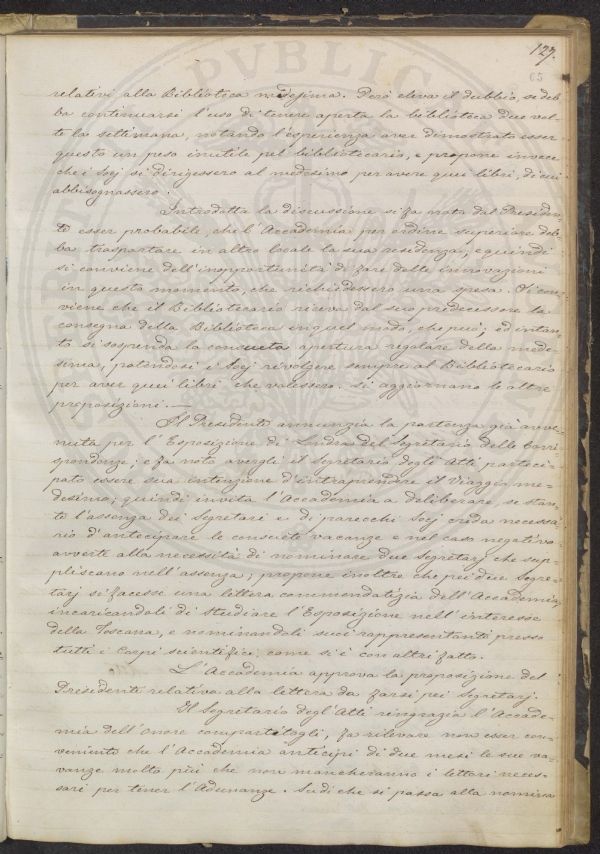 127.
65
relativi alla Biblioteca medesima. Però eleva il dubbio, se deb=
ba continuarsi l'uso di tenere aperta la biblioteca due vol=
te la settimana, notando l'esperienza aver dimostrato esser
questo un peso inutile pel bibliotecario, e propone invece
che i Socj si dirigessero al medesimo per avere quei libri, di cui
abbisognassero.
Introdotta la discussione si fa nota dal Presiden=
te esser probabile, che l'Accademia per ordine superiore deb=
ba trasportare in altro locale la sua residenza, e quindi
si conviene dell'inopportunità di fare delle innovazioni
in questo momento, che richiedessero una spesa. Si con=
viene che il Bibliotecario riceva dal suo predecessore la
consegna della Biblioteca in quel modo, che può; ed intan=
to si sospenda la consueta apertura regolare della mede=
sima, potendosi i Socj rivolgere sempre al Bibliotecario
per aver quei libri che volessero. Si aggiornano le altre
proposizioni.—
Il Presidente annunzia la partenza già avve=
nuta per l'Esposizione di Londra del Segretario delle Corri=
spondenze; e fa noto avergli il Segretario degli Atti parteci=
pato essere sua intenzione d'intraprendere il viaggio me=
desimo; quindi invita l'Accademia a deliberare, se stan=
te l'assenza dei Segretari e di parecchi Socj creda necessa=
rio d'anticipare le consuete vacanze e nel caso negativo
avverte alla necessità di nominare due Segretarj che sup=
pliscano nell'assenza; propone inoltre che pei due Segre=
tarj si facesse una lettera commendatizia dell'Accademia,
incaricandoli di studiare l'Esposizione nell'interesse
della Toscana, e nominandoli suoi rappresentanti presso
tutti i Corpi scientifici come si è con altri fatto.
L'Accademia approva la proposizione del
Presidente relativa alla lettera da farsi pei Segretarj.
Il Segretario degli Atti ringrazia l'Accade=
mia dell'onore compartitogli, fa rilevare non esser con=
veniente che l'Accademia anticipi di due mesi le sue va=
vanze molto più che non mancheranno i lettori neces=
sari per tener l'Adunanze. Sicchè si passa alla nomina